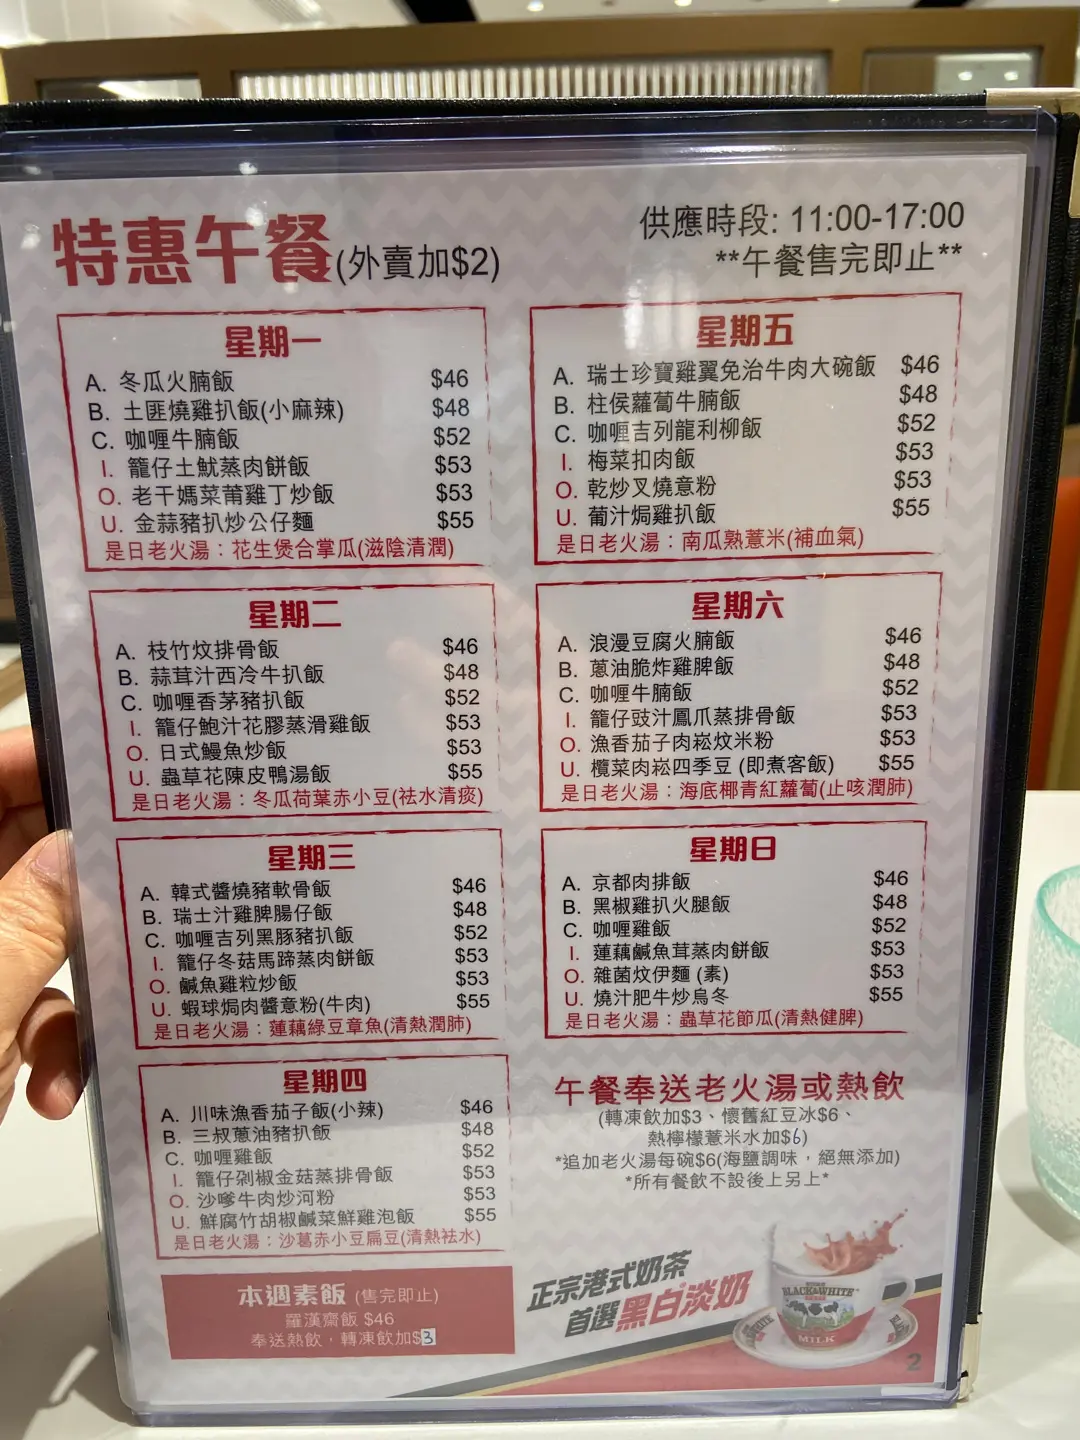 特惠午餐(外賣加$2)
供應時段: 11:00-17:00
**午餐售完即止**
星期一
A. 冬瓜火腩飯 $46
B. 土匪燒雞扒飯(小麻辣) $48
C. 咖喱牛腩飯 $52
I. 籠仔土魷蒸肉餅飯 $53
O. 老干媽菜莆雞丁炒飯 $53
U. 金蒜豬扒炒公仔麵 $55
是日老火湯：花生煲合掌瓜(滋陰清潤)
星期二
A. 枝竹炆排骨飯 $46
B. 蒜茸汁西冷牛扒飯 $48
C. 咖喱香茅豬扒飯 $52
I. 籠仔鮑汁花膠蒸滑雞飯 $53
O. 日式鰻魚炒飯 $53
U. 蟲草花陳皮鴨湯飯 $55
是日老火湯：冬瓜荷葉赤小豆(祛水清痰)
星期三
A. 韓式醬燒豬軟骨飯 $46
B. 瑞士汁雞脾腸仔飯 $48
C. 咖喱吉列黑豚豬扒飯 $52
I. 籠仔冬菇馬蹄蒸肉餅飯 $53
O. 鹹魚雞粒炒飯 $53
U. 蝦球焗肉醬意粉(牛肉) $55
是日老火湯：蓮藕綠豆章魚(清熱潤肺)
星期四
A. 川味漁香茄子飯(小辣) $46
B. 三叔蔥油豬扒飯 $48
C. 咖喱雞飯 $52
I. 籠仔剁椒金菇蒸排骨飯 $53
O. 沙嗲牛肉炒河粉 $53
U. 鮮腐竹胡椒鹹菜鮮雞泡飯 $55
是日老火湯：沙葛赤小豆扁豆(清熱祛水)
本週素飯 (售完即止)
羅漢齋飯 $46
奉送熱飲，轉凍飲加$3
星期五
A. 瑞士珍寶雞翼免治牛肉大碗飯 $46
B. 柱侯蘿蔔牛腩飯 $48
C. 咖喱吉列龍利柳飯 $52
I. 梅菜扣肉飯 $53
O. 乾炒叉燒意粉 $53
U. 葡汁焗雞扒飯 $55
是日老火湯：南瓜熟薏米(補血氣)
星期六
A. 浪漫豆腐火腩飯 $46
B. 蔥油脆炸雞脾飯 $48
C. 咖喱牛腩飯 $52
I. 籠仔豉汁鳳爪蒸排骨飯 $53
O. 漁香茄子肉崧炆米粉 $53
U. 欖菜肉崧四季豆 (即煮客飯) $55
是日老火湯：海底椰青紅蘿蔔(止咳潤肺)
星期日
A. 京都肉排飯 $46
B. 黑椒雞扒火腿飯 $48
C. 咖喱雞飯 $52
I. 蓮藕鹹魚茸蒸肉餅飯 $53
O. 雜菌炆伊麵 (素) $53
U. 燒汁肥牛炒烏冬 $55
是日老火湯：蟲草花節瓜(清熱健脾)
午餐奉送老火湯或熱飲
(轉凍飲加$3、懷舊紅豆冰$6、
熱檸檬薏米水加$6)
*追加老火湯每碗$6(海鹽調味，絕無添加)
*所有餐飲不設後上另上*
正宗港式奶茶
首選黑白淡奶
BLACK&WHITE
MILK
2